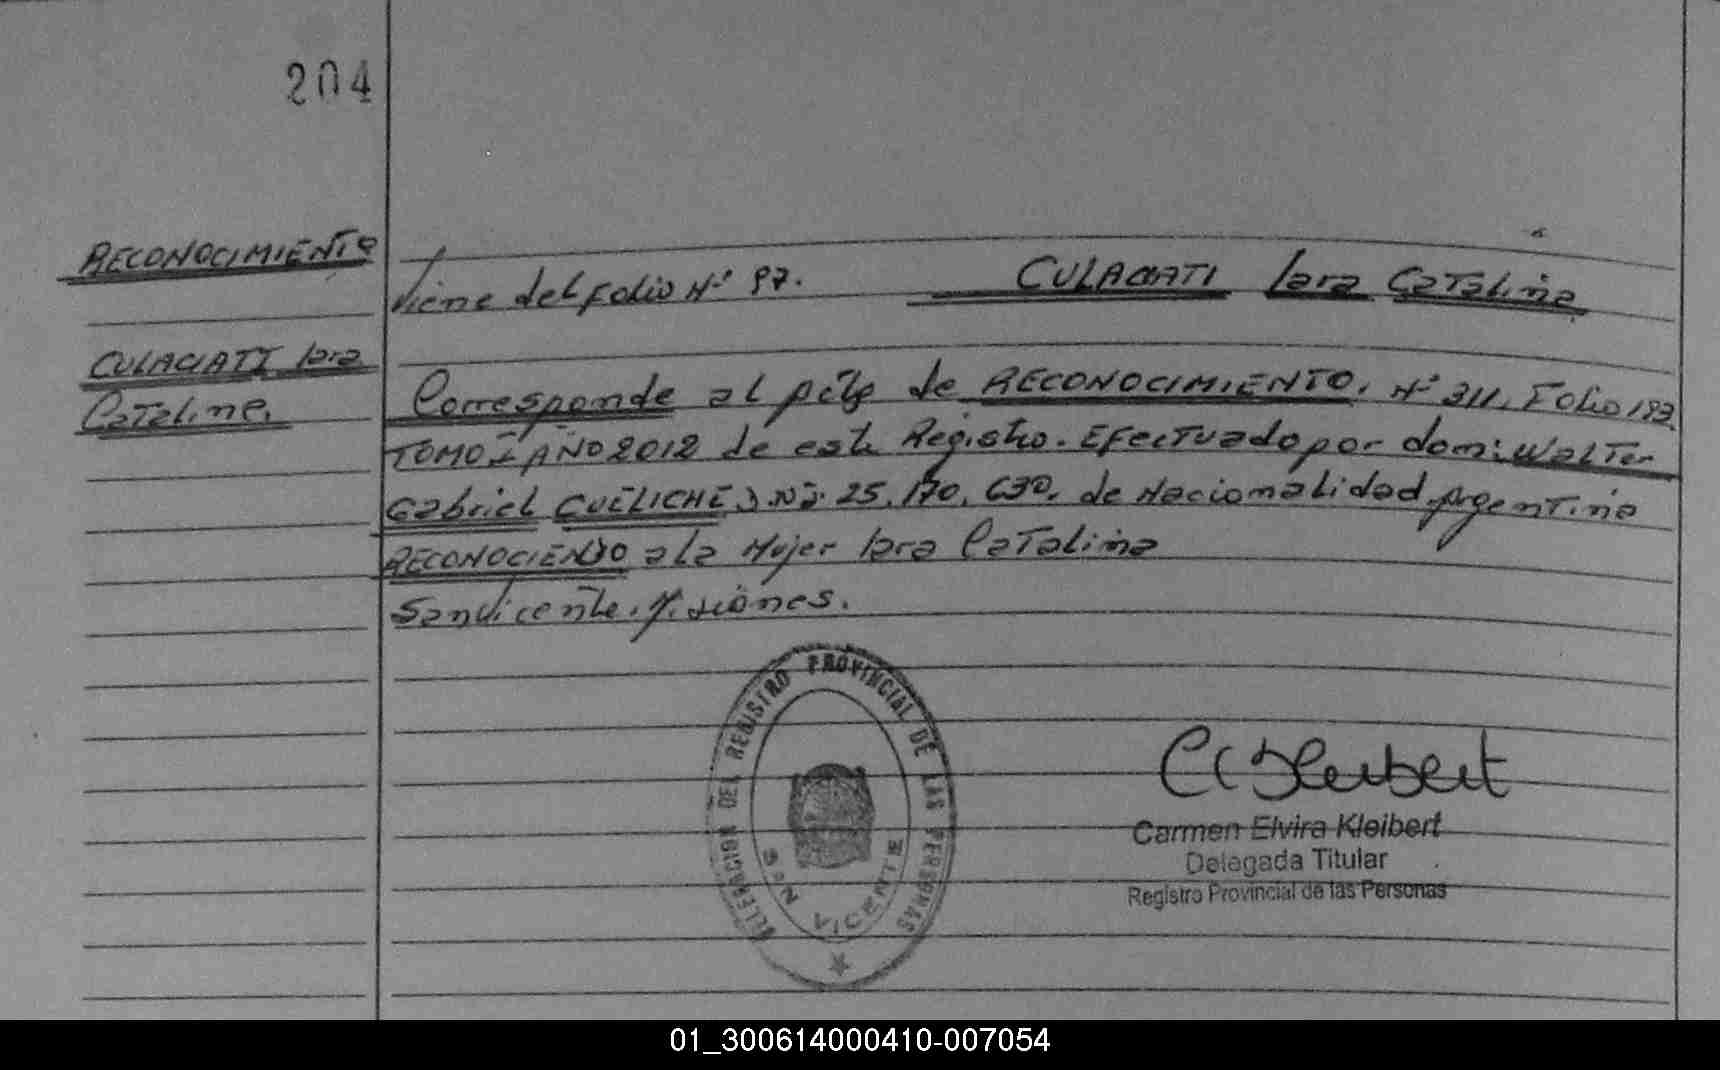 204
RECONOCIMIENTO
CULACIATI Iara
Catalina.
Viene del Folio Nº 97. CULACIATI Iara Catalina
Corresponde al de RECONOCIMIENTO. Nº 311. Folio 193
TOMO I AÑO 2012 de este Registro. Efectuado por don: Walter
Gabriel CUELICHE 25.170.630. de Nacionalidad Argentina
RECONOCIENDO a la Mujer Iara Catalina
San Vicente. Misiones.
DELEGACION DEL REGISTRO PROVINCIAL DE LAS PERSONAS
SAN VICENTE
Carmen Elvira Kleibert
Delegada Titular
Registro Provincial de las Personas
01_300614000410-007054